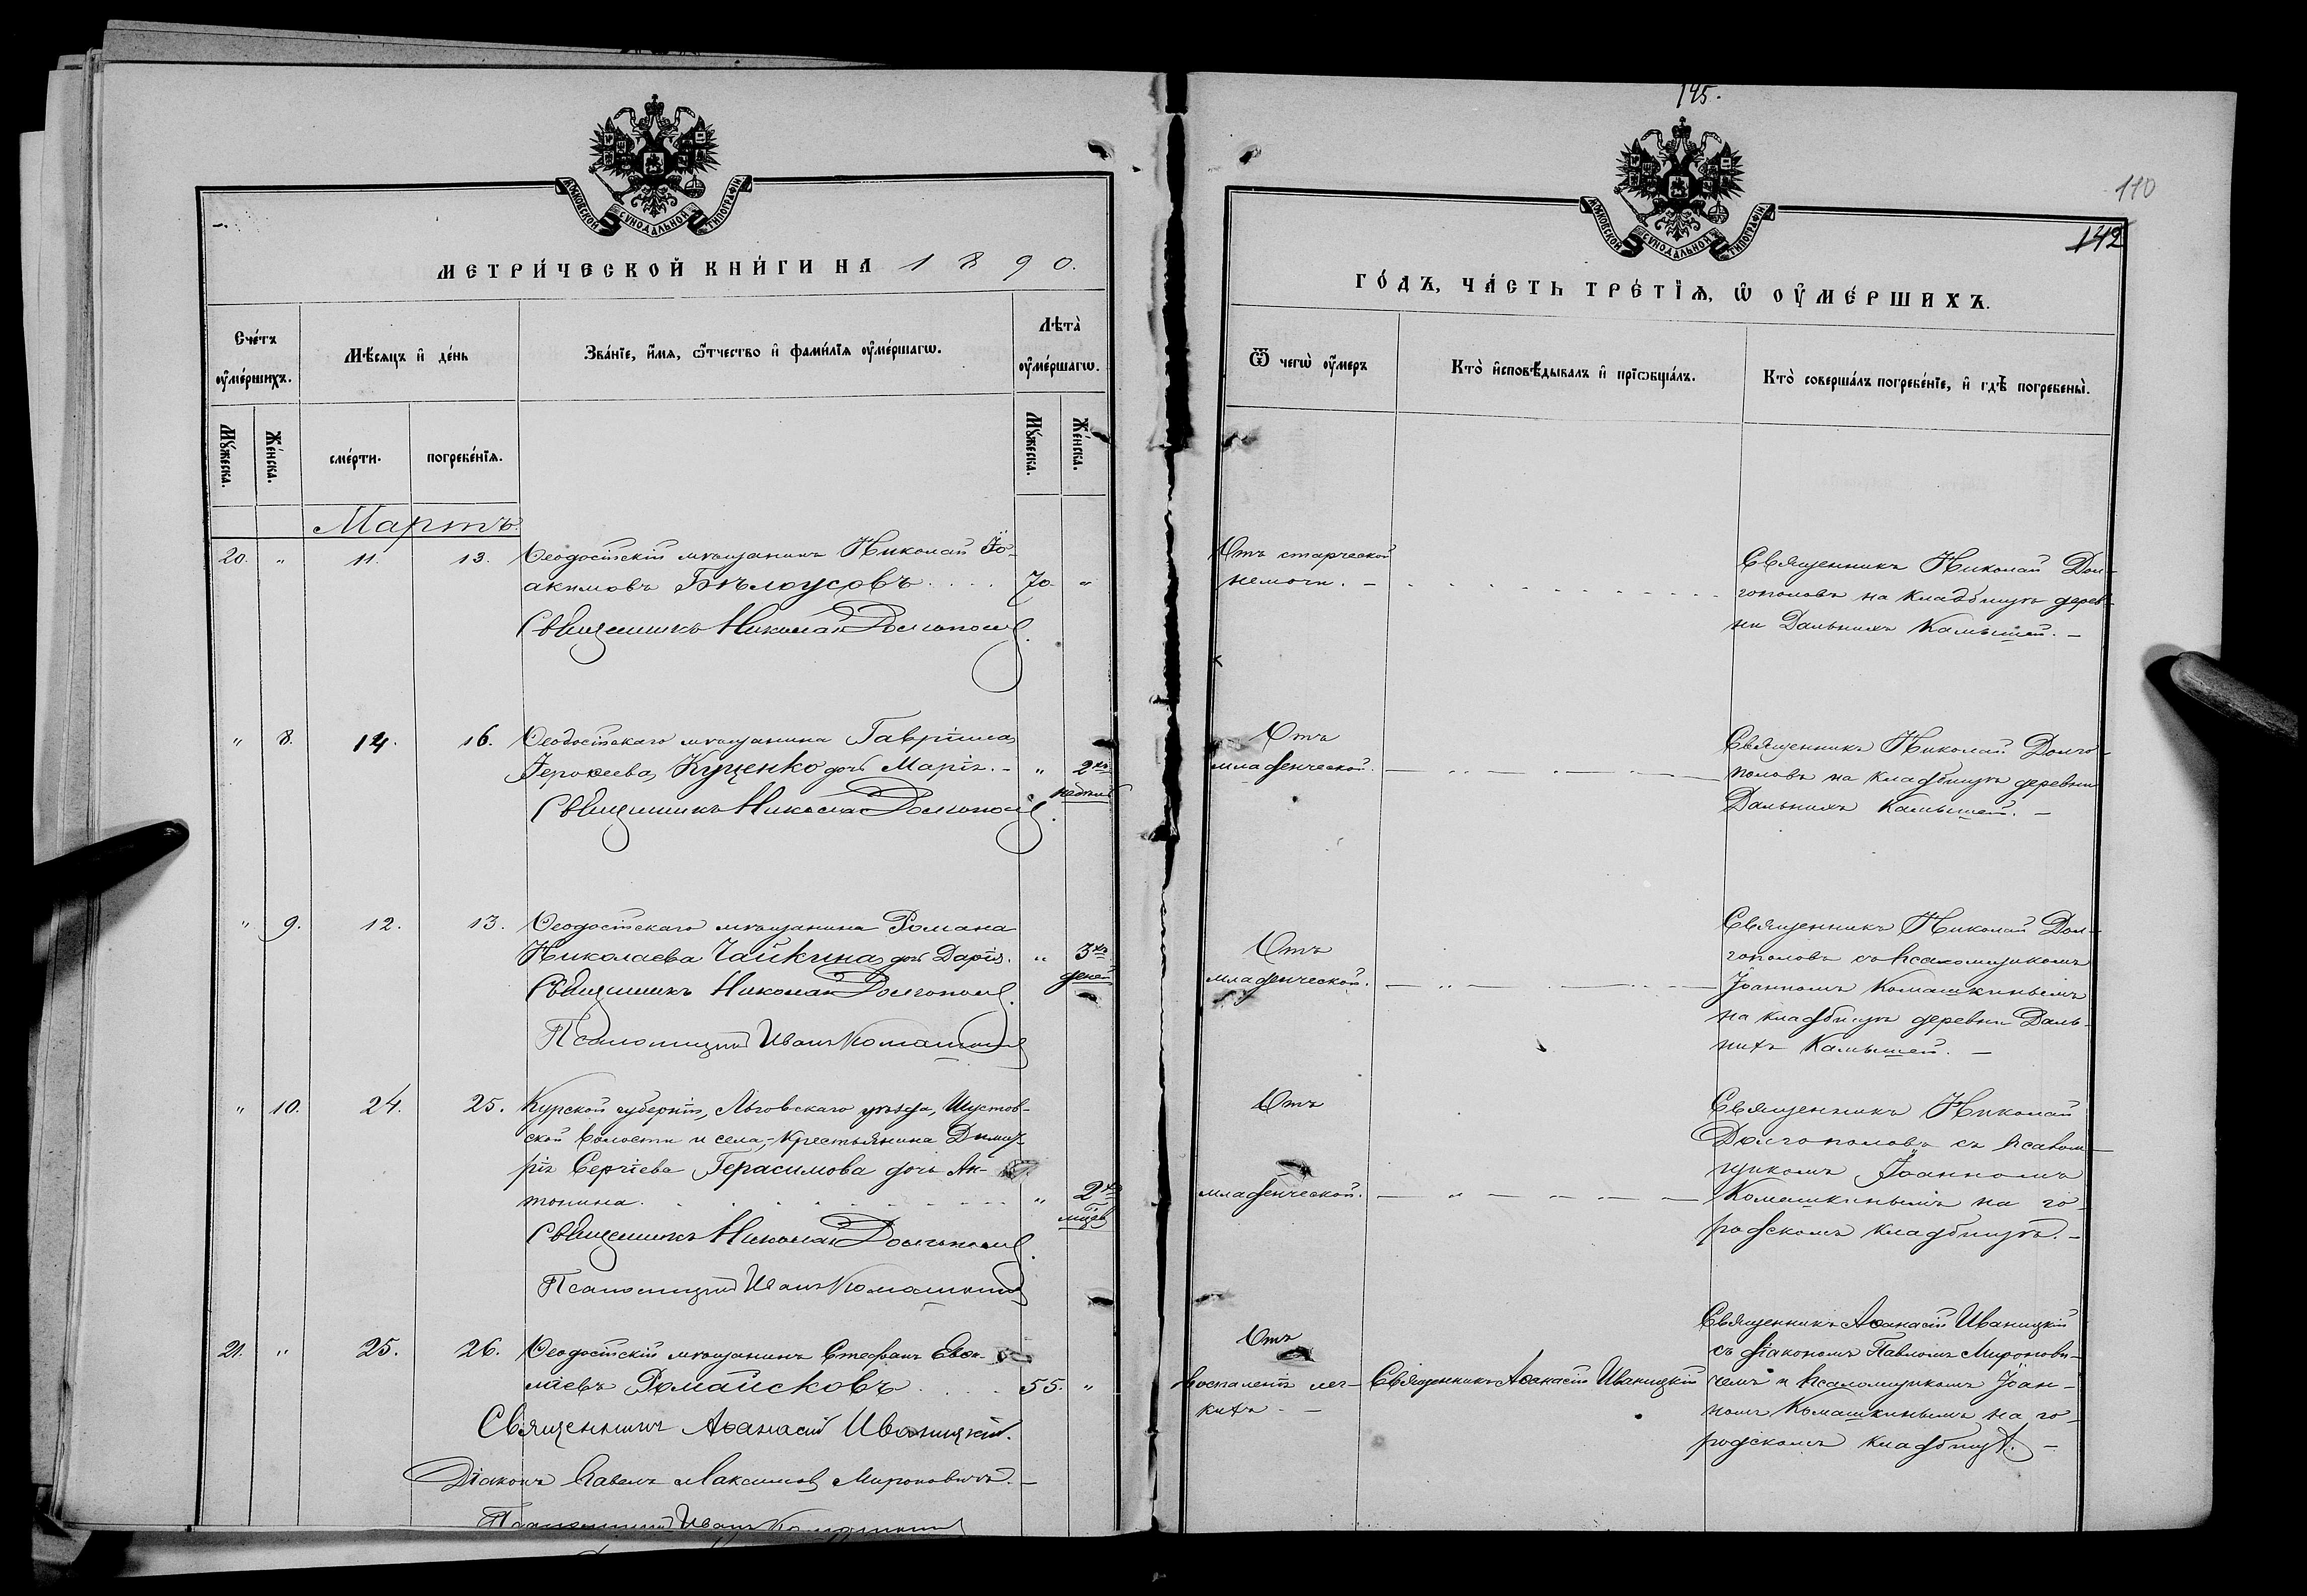 МОСКОВСКОЙ СѴНОДАЛЬНОЙ ТИПОГРАФІИ
МЕТРИ́ЧЕСКОЙ КНИ́ГИ НА 1890.
Сче́тъ ᲂу҆ме́ршихъ.
Мѣ́сяцъ и҆ де́нь
Зва́нїе, и҆́мѧ, ѻ҆́тчество и҆ фами́лїѧ ᲂу҆ме́ршагѡ.
Лѣта̀ ᲂу҆ме́ршагѡ.
Мꙋ́жеска.
Же́нска.
сме́рти.
погребе́нїѧ.
Мꙋ́жеска.
Же́нска.
Мартъ.
20. " 11. 13. Ѳеодосійскій мѣщанинъ Николай Іо-
акимовъ Бѣлоусовъ . . . . 70. "
Священникъ Николай Долгополовъ.
" 8. 14. 16. Ѳеодосійскаго мѣщанина Гавріила
Іероѳеева Куценко дочь Марія. - " 2хъ
недѣль
Священникъ Николай Долгополовъ.
" 9. 12. 13. Ѳеодосійскаго мѣщанина Романа
Николаева Чайкина дочь Дарія. " 3хъ
дней
Священникъ Николай Долгополовъ.
Псаломщикъ Иванъ Комашкинъ
" 10. 24. 25. Курской губерніи, Льговскаго уѣзда, Шустов-
ской волости и села, крестьянина Димит-
рія Сергіева Герасимова дочь Ан-
тонина. " 2хъ
мцев
Священникъ Николай Долгополовъ.
Псаломщикъ Иванъ Комашкинъ
21. " 25. 26. Ѳеодосійскій мѣщанинъ Стефанъ
Романсковъ . . . . 55. "
Священникъ Аѳанасій Иваницкій.
Діаконъ Павелъ Максимовъ Мироновичъ. -
Псаломщикъ Иванъ Комашкинъ
145.
110
142
МОСКОВСКОЙ СѴНОДАЛЬНОЙ ТИПОГРАФІИ
ГО́ДЪ, ЧА́СТЬ ТРЕ́ТЇѦ, Ѡ҆ ОУ҆МЕ́РШИХЪ.
Ѿ чегѡ̀ ᲂу҆́меръ
Кто̀ и҆сповѣ́дывалъ и҆ прїѡбща́лъ.
Кто̀ соверша́лъ погребе́нїе, и҆ гдѣ̀ погребены̀.
Отъ старческой
немочи. -
Священникъ Николай Дол-
гополовъ на кладбищѣ дерев-
ни Дальнихъ Камышей. -
Отъ
младенческой.
Священникъ Николай Долго-
половъ на кладбищѣ деревни
Дальнихъ Камышей. -
Отъ
младенческой.
Священникъ Николай Дол-
гополовъ съ псаломщикомъ
Іоанномъ Комашкинымъ
на кладбищѣ деревни Даль-
нихъ Камышей. -
Отъ
младенческой.
Священникъ Николай
Долгополовъ съ псалом-
щикомъ Іоанномъ
Комашкинымъ на го-
родскомъ кладбищѣ. -
Отъ
воспаленія лег-
кихъ. -
Священникъ Аѳанасій Иваницкій
Священникъ Аѳанасій Иваницкій
съ діакономъ Павломъ Миронови-
чемъ и псаломщикомъ Іоан-
номъ Комашкинымъ на го-
родскомъ кладбищѣ. -